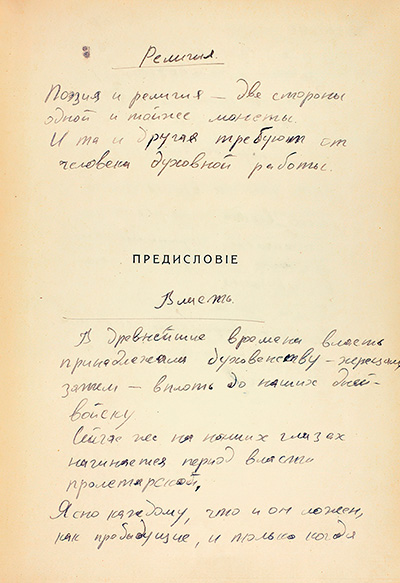 Религия.
Поэзия и религия – две стороны
одной и тойже монеты.
И та и другая требуют от
человека духовной работы.
ПРЕДИСЛОВІЕ
Власть.
В древнейшие времена власть
принадлежала духовенству – жрецам,
затем – вплоть до наших дней –
войску.
Сейчас же на наших глазах
начинается период власти
пролетарской,
Ясно каждому, что и он ложен,
как предыдущие, и только когда